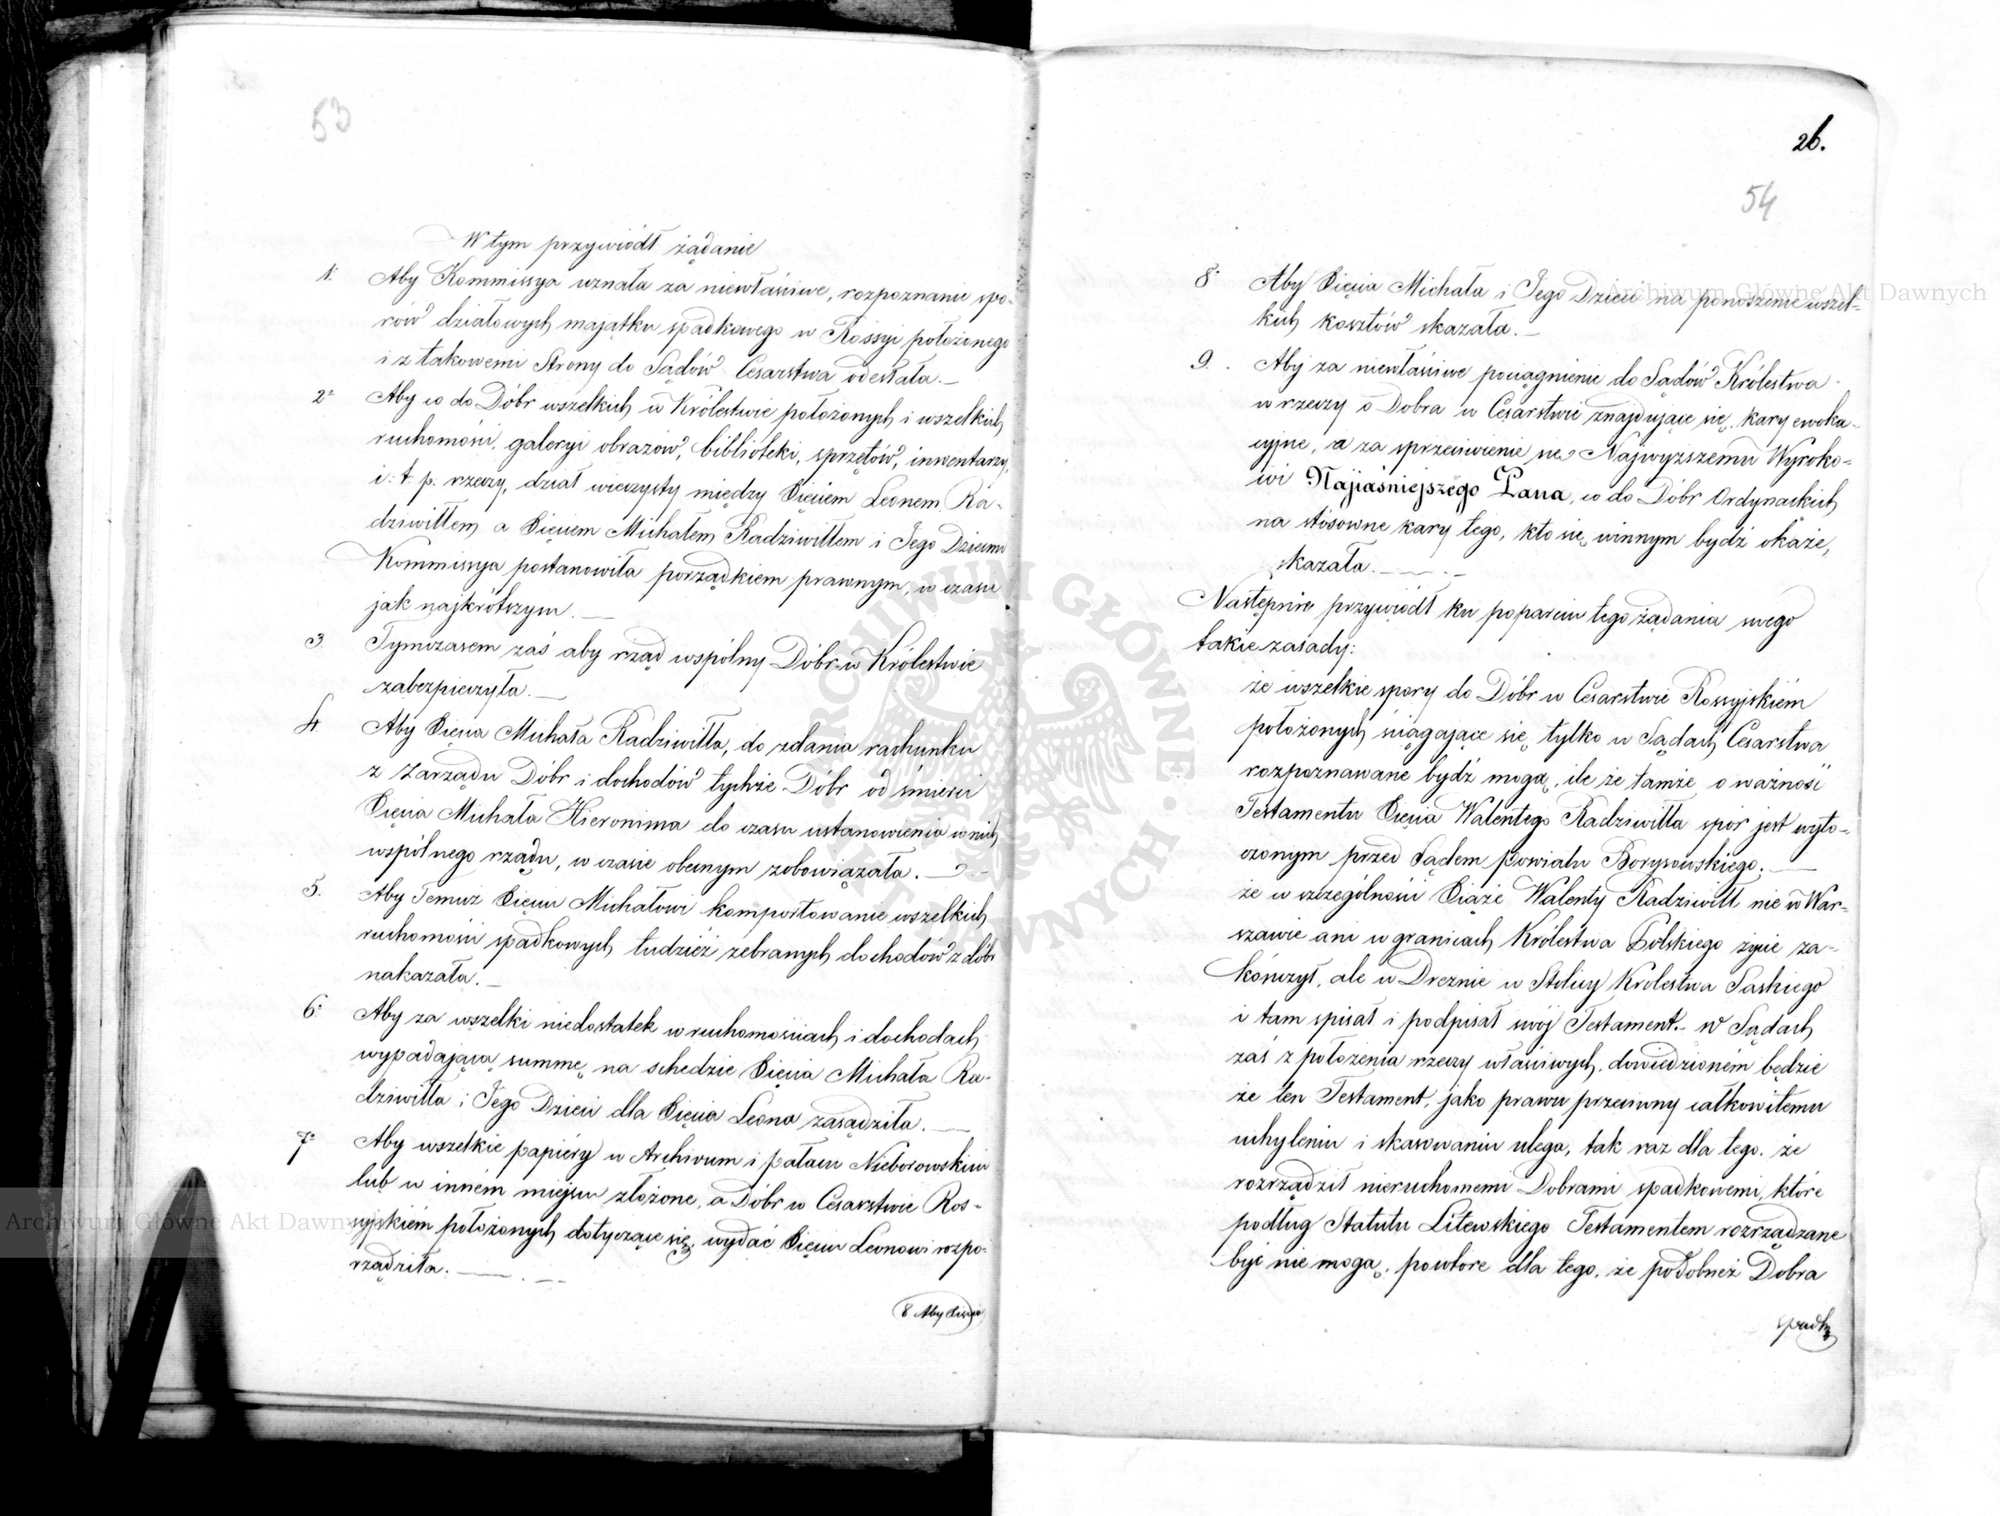 53
W tym przywiódł żądanie
1. Aby Kommissya uznała za niewłaściwe, rozpoznanie spo-
rów działowych majątku spadkowego w Rossyi położonego
i z takowemi Strony do Sądów Cesarstwa odesłała.—
2. Aby co do Dóbr wszelkich w Królestwie położonych i wszelkich
ruchomości, galeryi obrazów, biblioteki, sprzętów, inwentarzy,
i: t: p: rzeczy, dział wieczysty między Xięciem Leonem Ra-
dziwiłłem a Xięciem Michałem Radziwiłłem i Jego Dziećmi
Kommissya postanowiła porządkiem prawnym, w czasie
jak najkrótszym.—
3. Tymczasem zaś aby rząd wspólny Dóbr w Królestwie
zabezpieczyła.—
4. Aby Xięcia Michała Radziwiłła, do zdania rachunku
z Zarządu Dóbr i dochodów tychże Dóbr od śmierci
Xięcia Michała Hieronima do czasu ustanowienia w nich
wspólnego rządu, w czasie obecnym zobowiązała.—
5. Aby Temuż Xięciu Michałowi komportowanie wszelkich
ruchomości spadkowych tudzież zebranych dochodów z dóbr
nakazała.—
6. Aby za wszelki niedostatek w ruchomościach i dochodach
wypadającą summę, na schedzie Xięcia Michała Ra-
dziwiłła i Jego Dzieci dla Xięcia Leona zasądziła.—
7. Aby wszelkie papiéry w Archivum i pałacu Nieborowskim
lub w inném miejscu złożone, a Dóbr w Cesarstwie Ros-
syjskiém położonych dotyczące się, wydać Xięciu Leonowi rozpo-
rządziła.—
8 Aby Xięcia
26.
54
8. Aby Xięcia Michała i Jego Dzieci na ponoszenie wszel-
kich kosztów skazała.—
9. Aby za niewłaściwe pociągnienie do Sądów Królestwa
w rzeczy o Dobra w Cesarstwie znajdujące się, kary ewoka-
cyjne, a za sprzeciwienie się Najwyższemu Wyroko-
wi Najjaśniejszego Pana, co do Dóbr Ordynackich
na stósowne kary tego, kto się winnym bydź okaże,
skazała.—
Następnie przywiódł ku poparciu tego żądania swego
takie zasady:
że wszelkie spory do Dóbr w Cesarstwie Rossyjskiém
położonych ściągające się, tylko w Sądach Cesarstwa
rozpoznawane bydź mogą, ile że tamże o ważność
Testamentu Xięcia Walentego Radziwiłła spór jest wyto-
czonym przed Sądem powiatu Borysowskiego.—
że w szczególności Xiąże Walenty Radziwiłł nie w War-
szawie ani w granicach Królestwa Polskiego życie za-
kończył, ale w Dreznie w Stolicy Królestwa Saskiego
i tam spisał i podpisał swój Testament.- w Sądach
zaś z położenia rzeczy właściwych, dowiedzioném będzie
że ten Testament, jako prawu przeciwny całkowitemu
uchyleniu i skasowaniu ulega, tak raz dla tego, że
rozrządził nieruchomemi Dobrami spadkowemi, które
podług Statutu Litewskiego Testamentem rozrządzane
być nie mogą, powtóre dla tego, że podobneż Dobra
spadko
Archiwum Główne Akt Dawnych
Archiwum Główne Akt Dawnych
ARCHIWUM GŁÓWNE AKT DAWNYCH